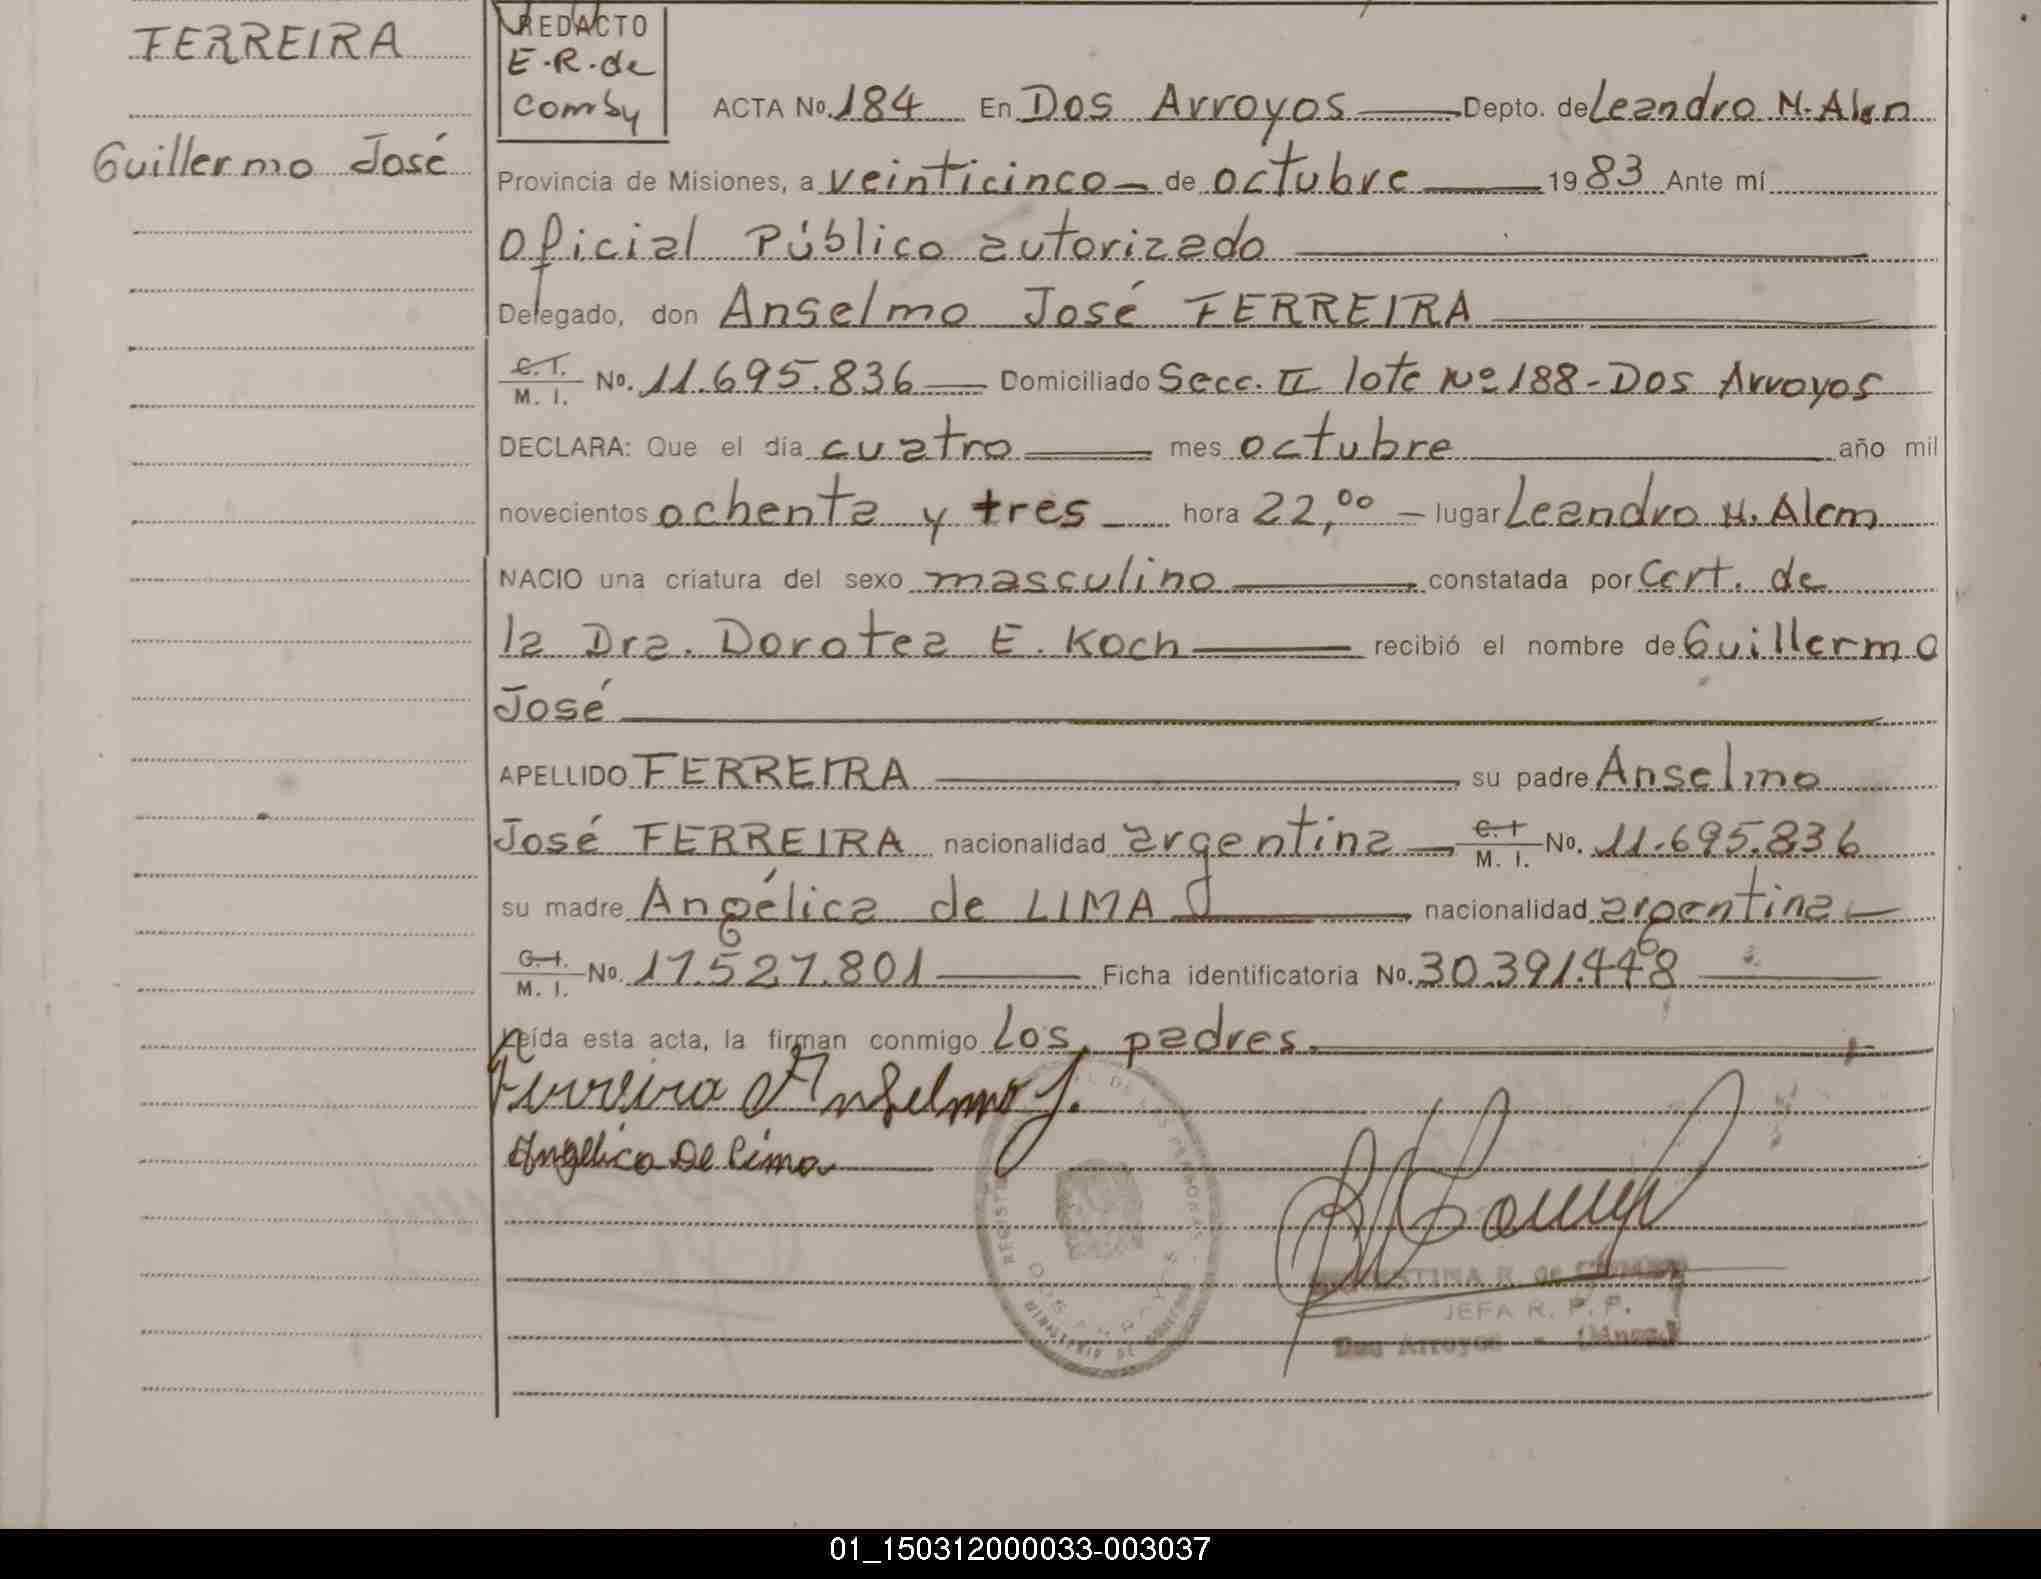 FERREIRA
Guillermo José
REDACTO
E.R. de
Comby
ACTA No. 184 En Dos Arroyos Depto. de Leandro N. Alem
Provincia de Misiones, a veinticinco de octubre 1983 Ante mí
Oficial Público autorizado
Delegado, don Anselmo José FERREIRA
C.I. / M. I. No. 11.695.836 Domiciliado Secc. II lote Nº 188 - Dos Arroyos
DECLARA: Que el día cuatro mes octubre año mil
novecientos ochenta y tres hora 22,00 lugar Leandro N. Alem
NACIO una criatura del sexo masculino constatada por Cert. de
la Dra. Dorotea E. Koch recibió el nombre de Guillermo
José
APELLIDO FERREIRA su padre Anselmo
José FERREIRA nacionalidad argentina C.I. / M. I. No. 11.695.836
su madre Angélica de LIMA nacionalidad argentina
C.I. / M. I. No. 17.527.801 Ficha identificatoria No. 30.391.448
Leída esta acta, la firman conmigo Los padres.
Ferreira Anselmo J.
Angelica De Lima
JEFA R. P. P.
Dos Arroyos - (Mnes.)
01_150312000033-003037